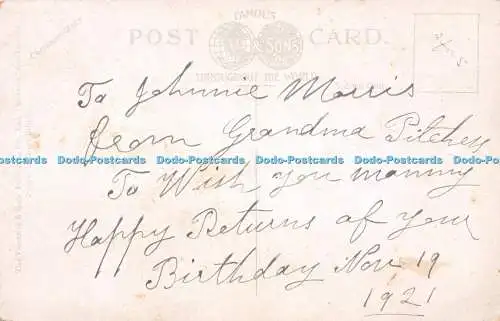 FAMOUS
POST CARD.
& SONS
THROUGHOUT THE WORLD
To Johnnie Morris
from Grandma Pitchess
Dodo-Postcards Dodo-Postcards Dodo-Postcards Dodo-Postcards Dodo-Postcards
To Wish you manny
Happy Returns of your
Birthday Nov 19
1921